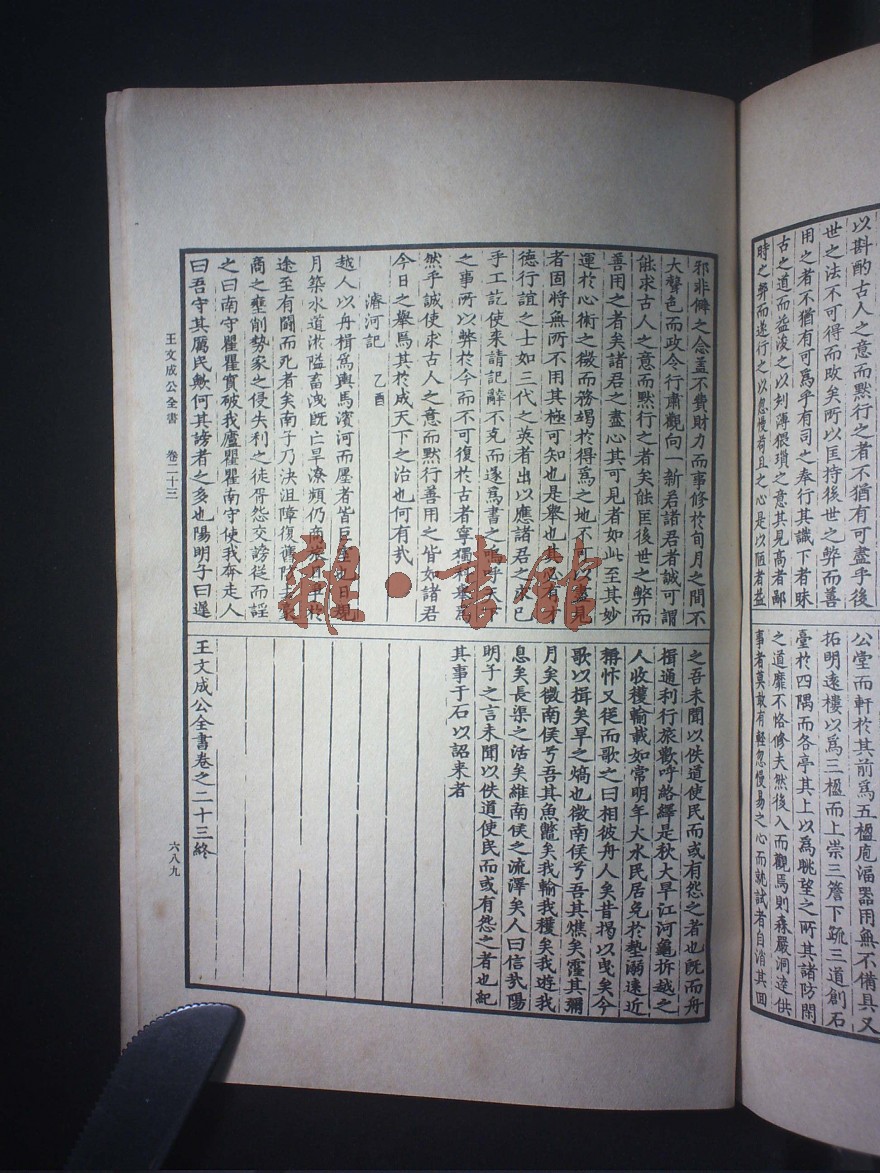 以斟酌古人之意而默行之者不猶有可盡乎後
世之法不可得而改矣所以匡持後世之弊而善
用之者不猶有可爲乎有司之奉行其識下者昧
古之道而益浚之以刻薄猥瑣之意其見高者鄙
時之弊而遂行之以忽慢苟且之心是以陋者益
公堂而軒於其前爲五楹庖湢器用無不備具又
拓明遠樓以爲三楹而上崇三簷下疏三道創石
臺於四隅而各亭其上以爲眺望之所其諸防閑
之道靡不恪修夫然後入而觀焉則森嚴洞達供
事者莫敢有輕忽慢易之心而就試者自消其回
邪非僻之念蓋不費財力而事修於旬月之間不
大聲色而政令行肅觀向一新若諸君者誠可謂
能求古人之意而默行之者矣能匡後世之弊而
善用之者矣諸君之盡心其可見者如此至其妙
運於心術之微而務竭於得爲之地不可以盡見
者固將無所不用其極可知也是舉也其必有才
德行誼之士如三代之英者出以應諸君之求已
乎工訖使來請記辭不克而遂爲書之嗚呼天下
之事所以弊於今而不可復於古者寧獨科舉爲
然乎誠使求古人之意而默行善用之皆如諸君
今日之舉焉其於成天下之治也何有哉
濬河記 乙酉
越人以舟楫爲輿馬濱河而廛者皆巨室也日規
月築水道淤隘畜洩既亡旱潦頻仍商旅日爭於
途至有鬬而死者矣南子乃決沮障復舊防去豪
商之壅削勢家之侵失利之徒胥怨交謗從而謠
之曰南守瞿瞿實破我廬瞿瞿南守使我奔走人
曰吾守其厲民歟何其謗者之多也陽明子曰遲
之吾未聞以佚道使民而或有怨之者也既而舟
楫通利行旅歡呼絡繹是秋大旱江河龜坼越之
人收穫輸載如常明年大水民居免於墊溺遠近
稱忭又從而歌之曰相彼舟人矣昔揭以曳矣今
歌以楫矣旱之熇也微南侯兮吾其燋矣霪其彌
月矣微南侯兮吾其魚鼈矣我輸我穫矣我遊我
息矣長渠之活矣維南侯之流澤矣人曰信哉陽
明子之言未聞以佚道使民而或有怨之者也紀
其事于石以詔來者
王文成公全書卷之二十三終
王文成公全書 卷二十三
六八九
雜·書館